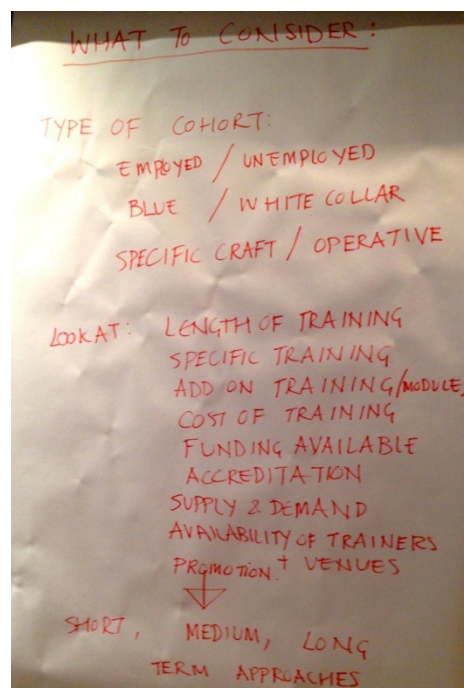 WHAT TO CONSIDER:
TYPE OF COHORT:
EMPLOYED / UNEMPLOYED
BLUE / WHITE COLLAR
SPECIFIC CRAFT / OPERATIVE
LOOK AT: LENGTH OF TRAINING
SPECIFIC TRAINING
ADD ON TRAINING/MODULE,
COST OF TRAINING
FUNDING AVAILABLE
ACCREDITATION
SUPPLY & DEMAND
AVAILABILITY OF TRAINERS
PROMOTION. + VENUES
SHORT, MEDIUM, LONG
TERM APPROACHES